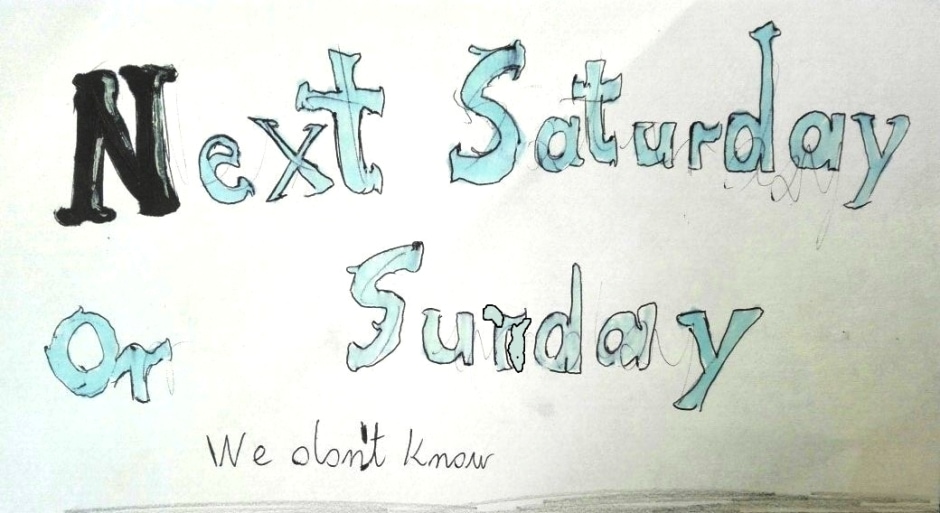 Next Saturday
Or Sunday
We don't know